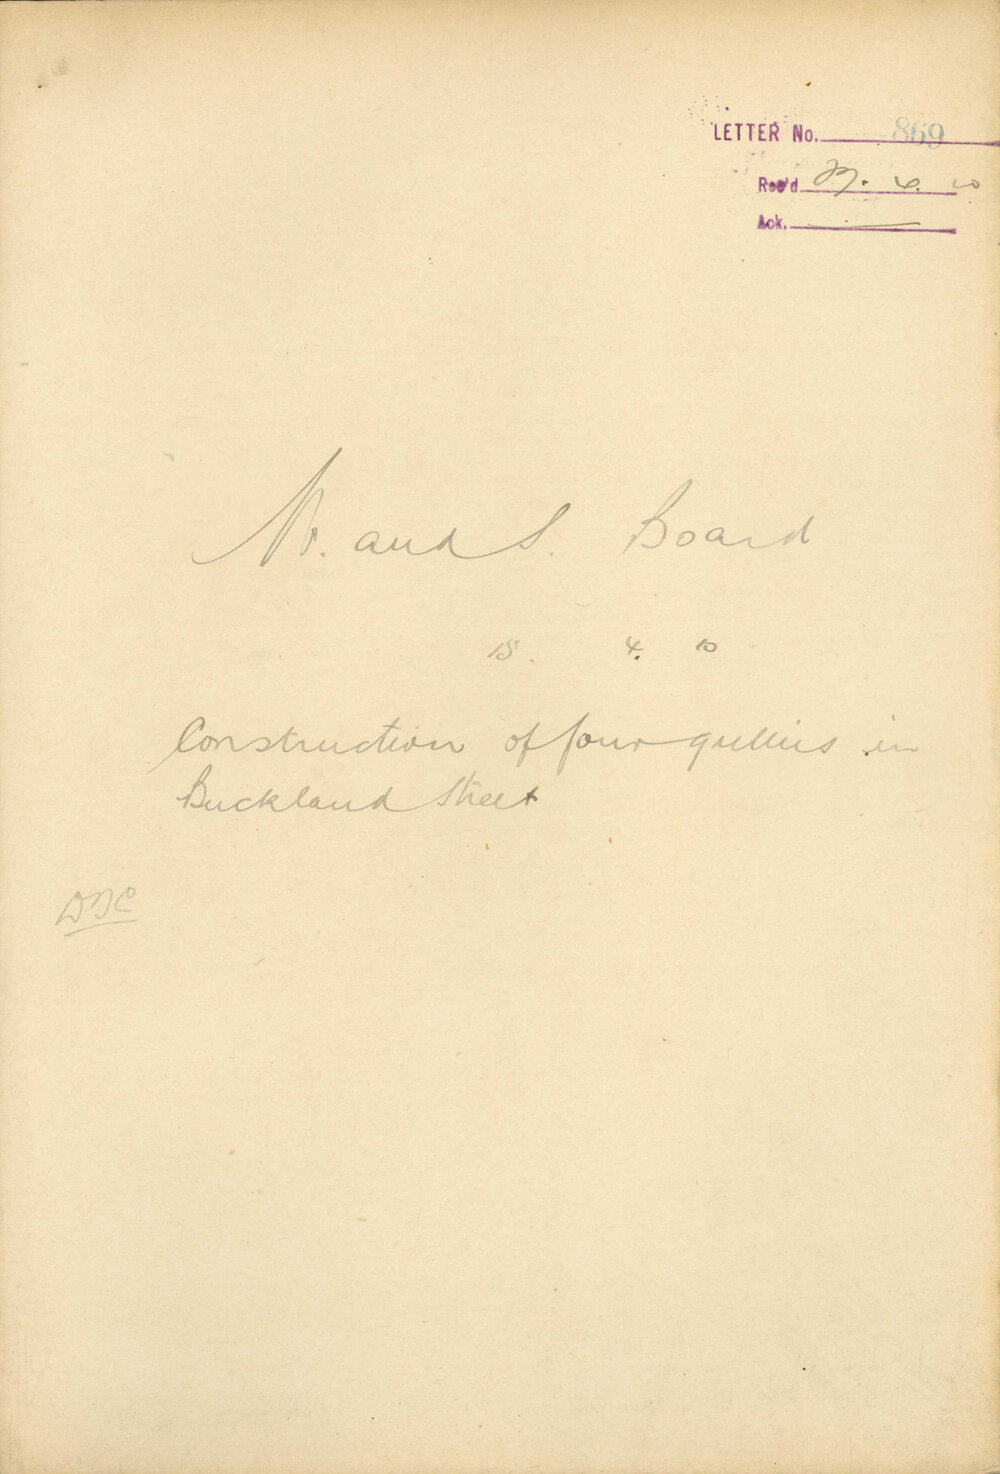 LETTER No. 869
Rec'd . 4. 10
Ack.
W. and S. Board
15. 4. 10
Construction of four gullies in
Buckland Street